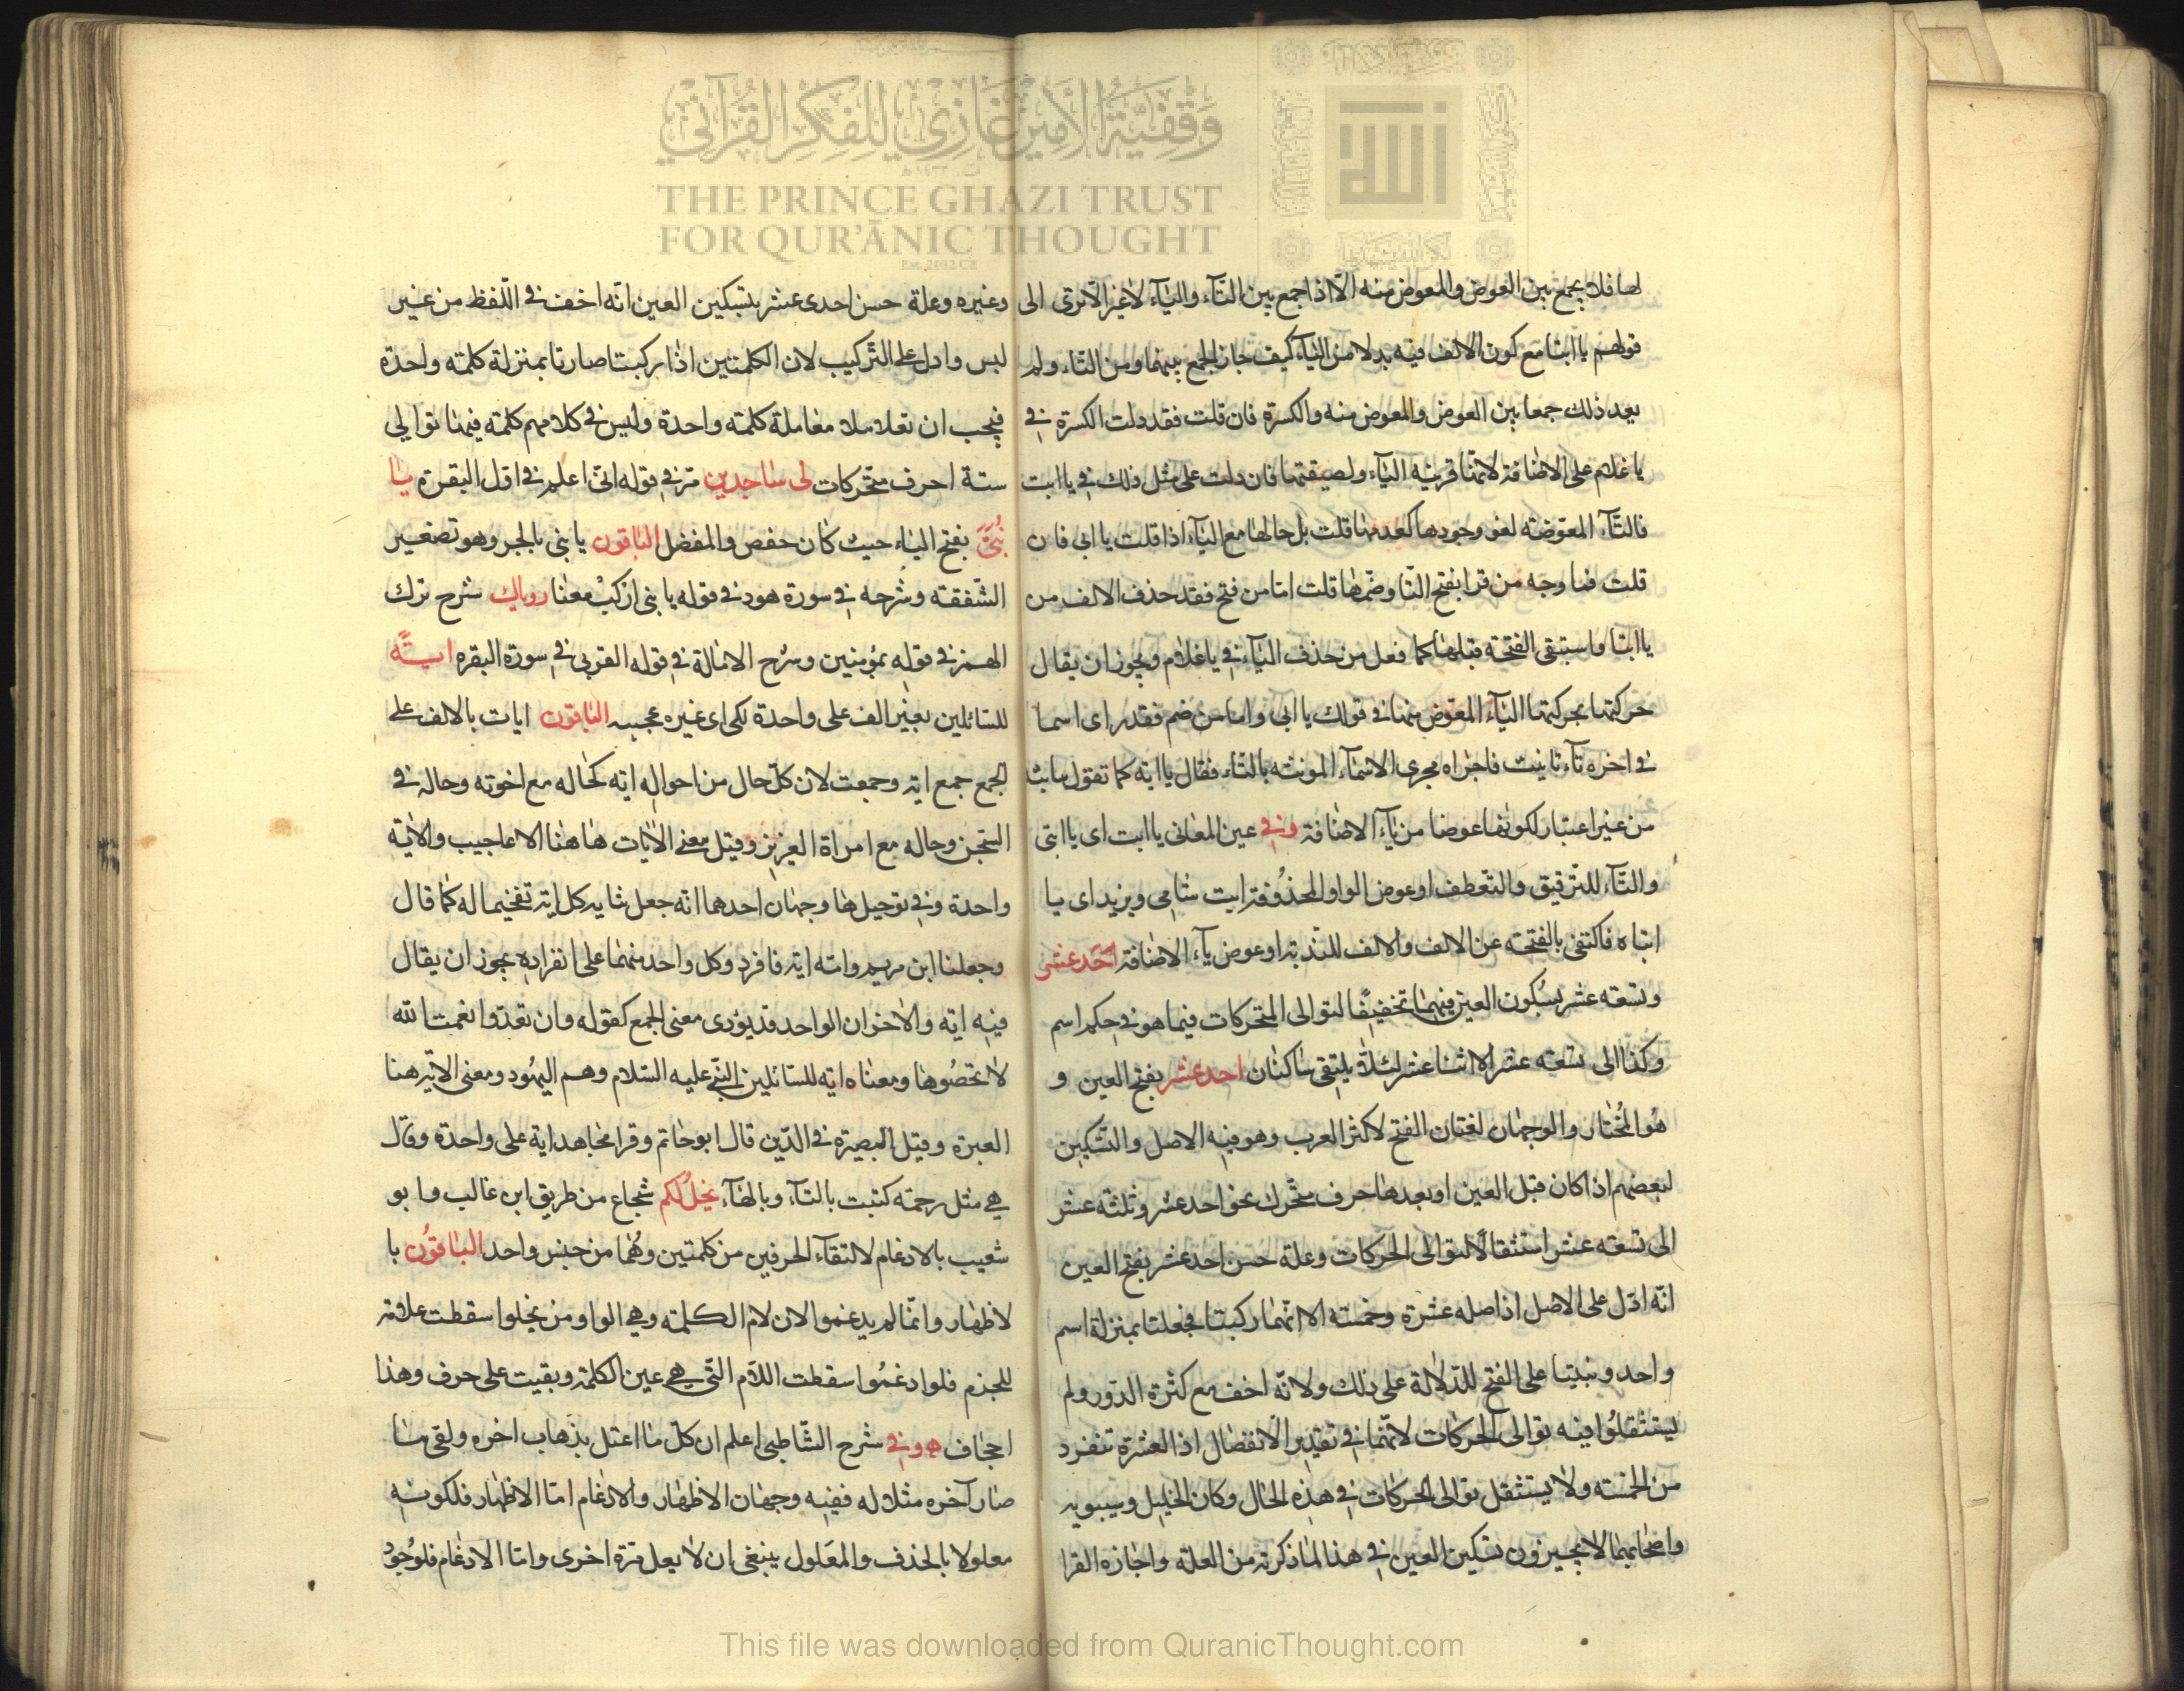 وقفية الأمير غازي للفكر القرآني
THE PRINCE GHAZI TRUST
FOR QUR'ĀNIC THOUGHT
لها فلا يجمع بين العوض والمعوض منه الا اذا جمع بين التآء واليآء لا غير الا ترى الى
قولهم يا ابتا مع كون الالف فيه بدلا من اليآء كيف جاز الجمع بينهما ومن التاء ولم
يعد ذلك جمعا بين العوض والمعوض منه والكسرة فان قلت فقد دلت الكسرة في
يا غلام على الاضافة لانها قرينة اليآء ولصيقتها فان دلت على مثل ذلك في يا ابت
فالتآء المعوضة لغو وجودها كعدمها قلت بل حالها مع اليآء اذا قلت يا ابى فان
قلت فما وجه من قرا بفتح التا وضمها قلت اما من فتح فقد حذف الالف من
يا ابتا واستبقى الفتحة قبلها كما فعل من حذف اليآء في يا غلام ويجوز ان يقال
حركتها بحركتها اليآء المعوض منها في قولك يا ابى واما من ضم فقد راى اسما
في اخره تآء تانيث فاجراه مجرى الاسمآء المونثه بالتآء فقال يا ابة كما تقول يا ثبة
من غير اعتبار لكونها عوضا من يآء الاضافة وفي عين المعانى يا ابت اى يا ابتى
والتآء للترقيق والتعطف او عوض الواو المحذوفة ابت شامي ويزيد اى يا
ابتاه فاكتفى بالفتحة عن الالف والالف للندبة او عوض يآء الاضافة احد عشر
وتسعة عشر بسكون العين فيهما تخفيفا لتوالى المتحركات فيما هو في حكم اسم
وكذا الى تسعة عشر الا اثنا عشر لئلا يلتقى ساكنان احد عشر بفتح العين و
هو المختار والوجهان لغتان الفتح لاكثر العرب وهو فيه الاصل والتسكين
لبعضهم اذا كان قبل العين او بعدها حرف متحرك نحو احد عشر وثلثة عشر
الى تسعة عشر استثقالا لتوالى الحركات وعلة حسن احد عشر بفتح العين
انه ادل على الاصل اذ اصله عشرة وخمسة الا انهما ركبتا فجعلتا بمنزلة اسم
واحد وبنيتا على الفتح للدلالة على ذلك ولانه اخف مع كثرة الدور ولم
ليستثقلوا فيه توالى الحركات لانهما في تقدير الانفصال اذ العشرة تنفرد
من الخمسة ولا يستثقل توالى الحركات في هذه الحال وكان الخليل وسيبويه
واصحابهما لا يجيزون تسكين العين في هذا لما ذكرته من العلة واجازه الفرا
وغيره وعلة حسن احدى عشر بتسكين العين انه اخف في اللفظ من غير
لبس وادل على التركيب لان الكلمتين اذا ركبتا صارتا بمنزلة كلمة واحدة
فيجب ان تعلاملا معاملة كلمة واحدة وليس في كلامهم كلمة فيها توالى
ستة احرف متحركات لى ساجدين مر في قوله انى اعلم في اول البقرة يا
بنى بفتح الياء حيث كان حفص والمفضل الباقون يا بنى بالجر وهو تصغير
الشفقة وشرحه في سورة هود في قوله يا بنى اركب معنا روياك شرح ترك
الهمز في قوله بمؤمنين وشرح الامالة في قوله القربى في سورة البقره اية
للسائلين بغير الف على واحدة لكى اى غيره عجيبه الباقون ايات بالالف على
الجمع جمع اية وجمعت لان كل حال من احواله اية كحاله مع اخوته وحاله في
السجن وحاله مع امراة العزيز وقيل معنى الايات هاهنا الاعاجيب والاية
واحدة وفي توحيدها وجهان احدهما انه جعل شانه كل اية تفخيما له كما قال
وجعلنا ابن مريم وامه اية فافرد وكل واحد منهما على انفراده يجوز ان يقال
فيه اية والاخر ان الواحد قد يودى معنى الجمع كقوله وان تعدوا نعمت الله
لا تحصوها ومعناه اية للسائلين النبي عليه السلام وهم اليهود ومعنى الاية هنا
العبرة وقيل البصيرة في الدين قال ابو حاتم وقرا مجاهد اية على واحدة وقال
هي مثل رحمة كتبت بالتآء وبالهآء يخل لكم شجاع من طريق ابن غالب وابو
شعيب بالادغام لالتقآء الحرفين من كلمتين وهما من جنس واحد الباقون با
لاظهار وانما لم يدغموا لان لام الكلمة وهي الواو من يخلوا سقطت علامة
للجزم فلو ادغموا سقطت اللام التي هي عين الكلمة وبقيت على حرف وهذا
اجحاف وفي شرح الشاطبى اعلم ان كل ما اعتل بذهاب اخره ولقى ما
صار آخره مثلا له ففيه وجهان الاظهار والادغام اما الاظهار فلكونه
معلولا بالحذف والمعلول ينبغى ان لا يعل مرة اخرى واما الادغام فلوجود
This file was downloaded from QuranicThought.com